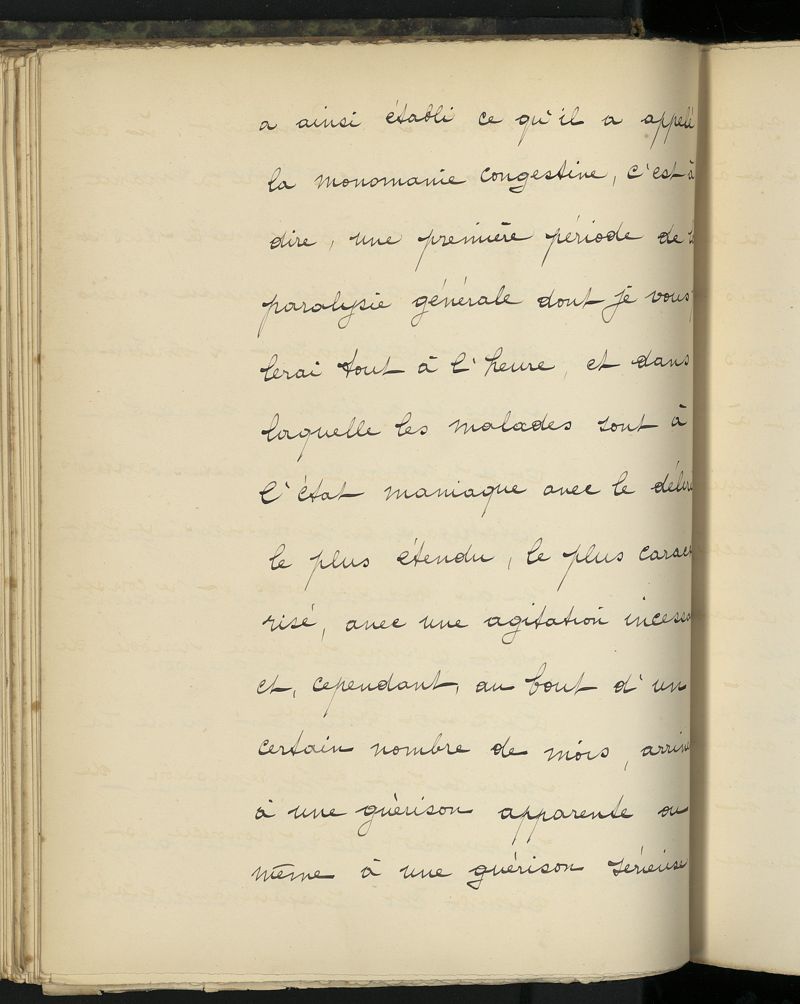 a ainsi établi ce qu'il a appelé
la monomanie congestive, c'est à
dire, une première période de
paralysie générale dont je vous
lerai tout à l'heure, et dans
laquelle les malades sont à
l'état maniaque avec le délire
le plus étendu, le plus carac
risé, avec une agitation incess
et, cependant, au bout d'un
certain nombre de mois, arrive
à une guèrison apparente ou
même à une guérison sérieuse